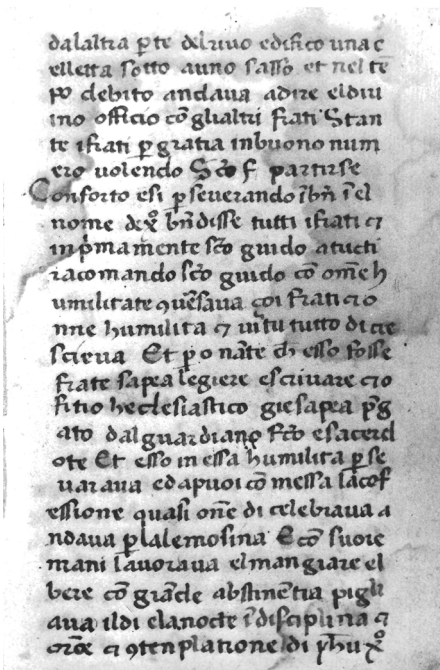 dalaltra pte delrivo edifico una c
elletta sotto auno sasso et nel te̅
po debito andava adire eldiv
ino officio co̅ glialtri frati Stan
te ifrati p gratia inbuono num
ero volendo S̅c̅o f partirse
Conforto esi pseverando i̅ bn̅ i̅ el
nome de xo̅ bn̅disse tutti ifrati ⁊
inpmamente sc̅o guido atucti
racomando sc̅o guido co̅ om̅e h
umilitate ꝯve̅sava coi frati ⁊ o
nne humilita ⁊ vi̅tu tutto di cre
sceva Et p o na̅te ch̅ esso fosse
frate sapea legiere escrivare ⁊ o
fitio heclesiastico gie sapea p̅g
ato dal guardiano fc̅o e sacerd
ote Et esso in essa humilita pse
varava edapuoi co̅ messa la co̅f
essione quasi on̅e di celebrava a
ndava p lalemosina E co̅ suore
mani lavorava elmangiare el
bere co̅ gra̅de abstine̅tia pigli
ava il di elanocte i̅ disciplina ⁊
oro̅e ⁊ ꝯtenplatione di yh̅u xo̅